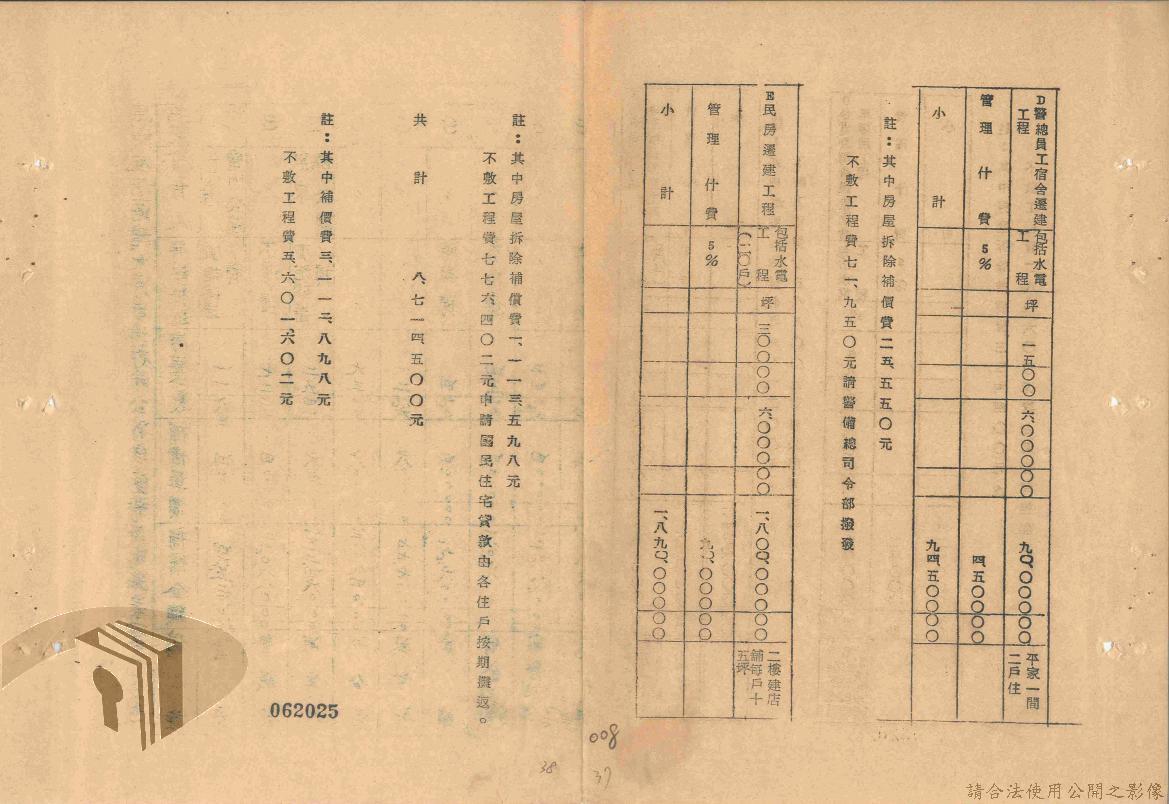 D警總員工宿舍遷建工程
包括水電工程
坪
一五〇〇
六〇〇〇〇〇
九〇、〇〇〇〇〇
平家一間二戶住
管理什費
5%
四、五〇〇〇〇
小計
九四、五〇〇〇〇
註：其中房屋拆除補償費二五、五五〇元
不敷工程費七一、九五〇元請警備總司令部撥發
E民房遷建工程
包括水電工程(二〇戶)
坪
三〇〇〇〇
六、〇〇〇〇〇
一、八〇〇、〇〇〇〇〇
二樓建店舖每戶十五坪
管理什費
5%
九〇、〇〇〇〇〇
小計
一、八九〇、〇〇〇〇〇
註：其中房屋拆除補償費一、一一三、五九八元
不敷工程費七七六、四〇二元申請國民住宅貸款由各住戶按期攤返。
共計 八、七一四、五〇〇元
註：其中補償費三、一一二、八九八元
不敷工程費五、六〇一、六〇二元
062025
008
38
37
請合法使用公開之影像